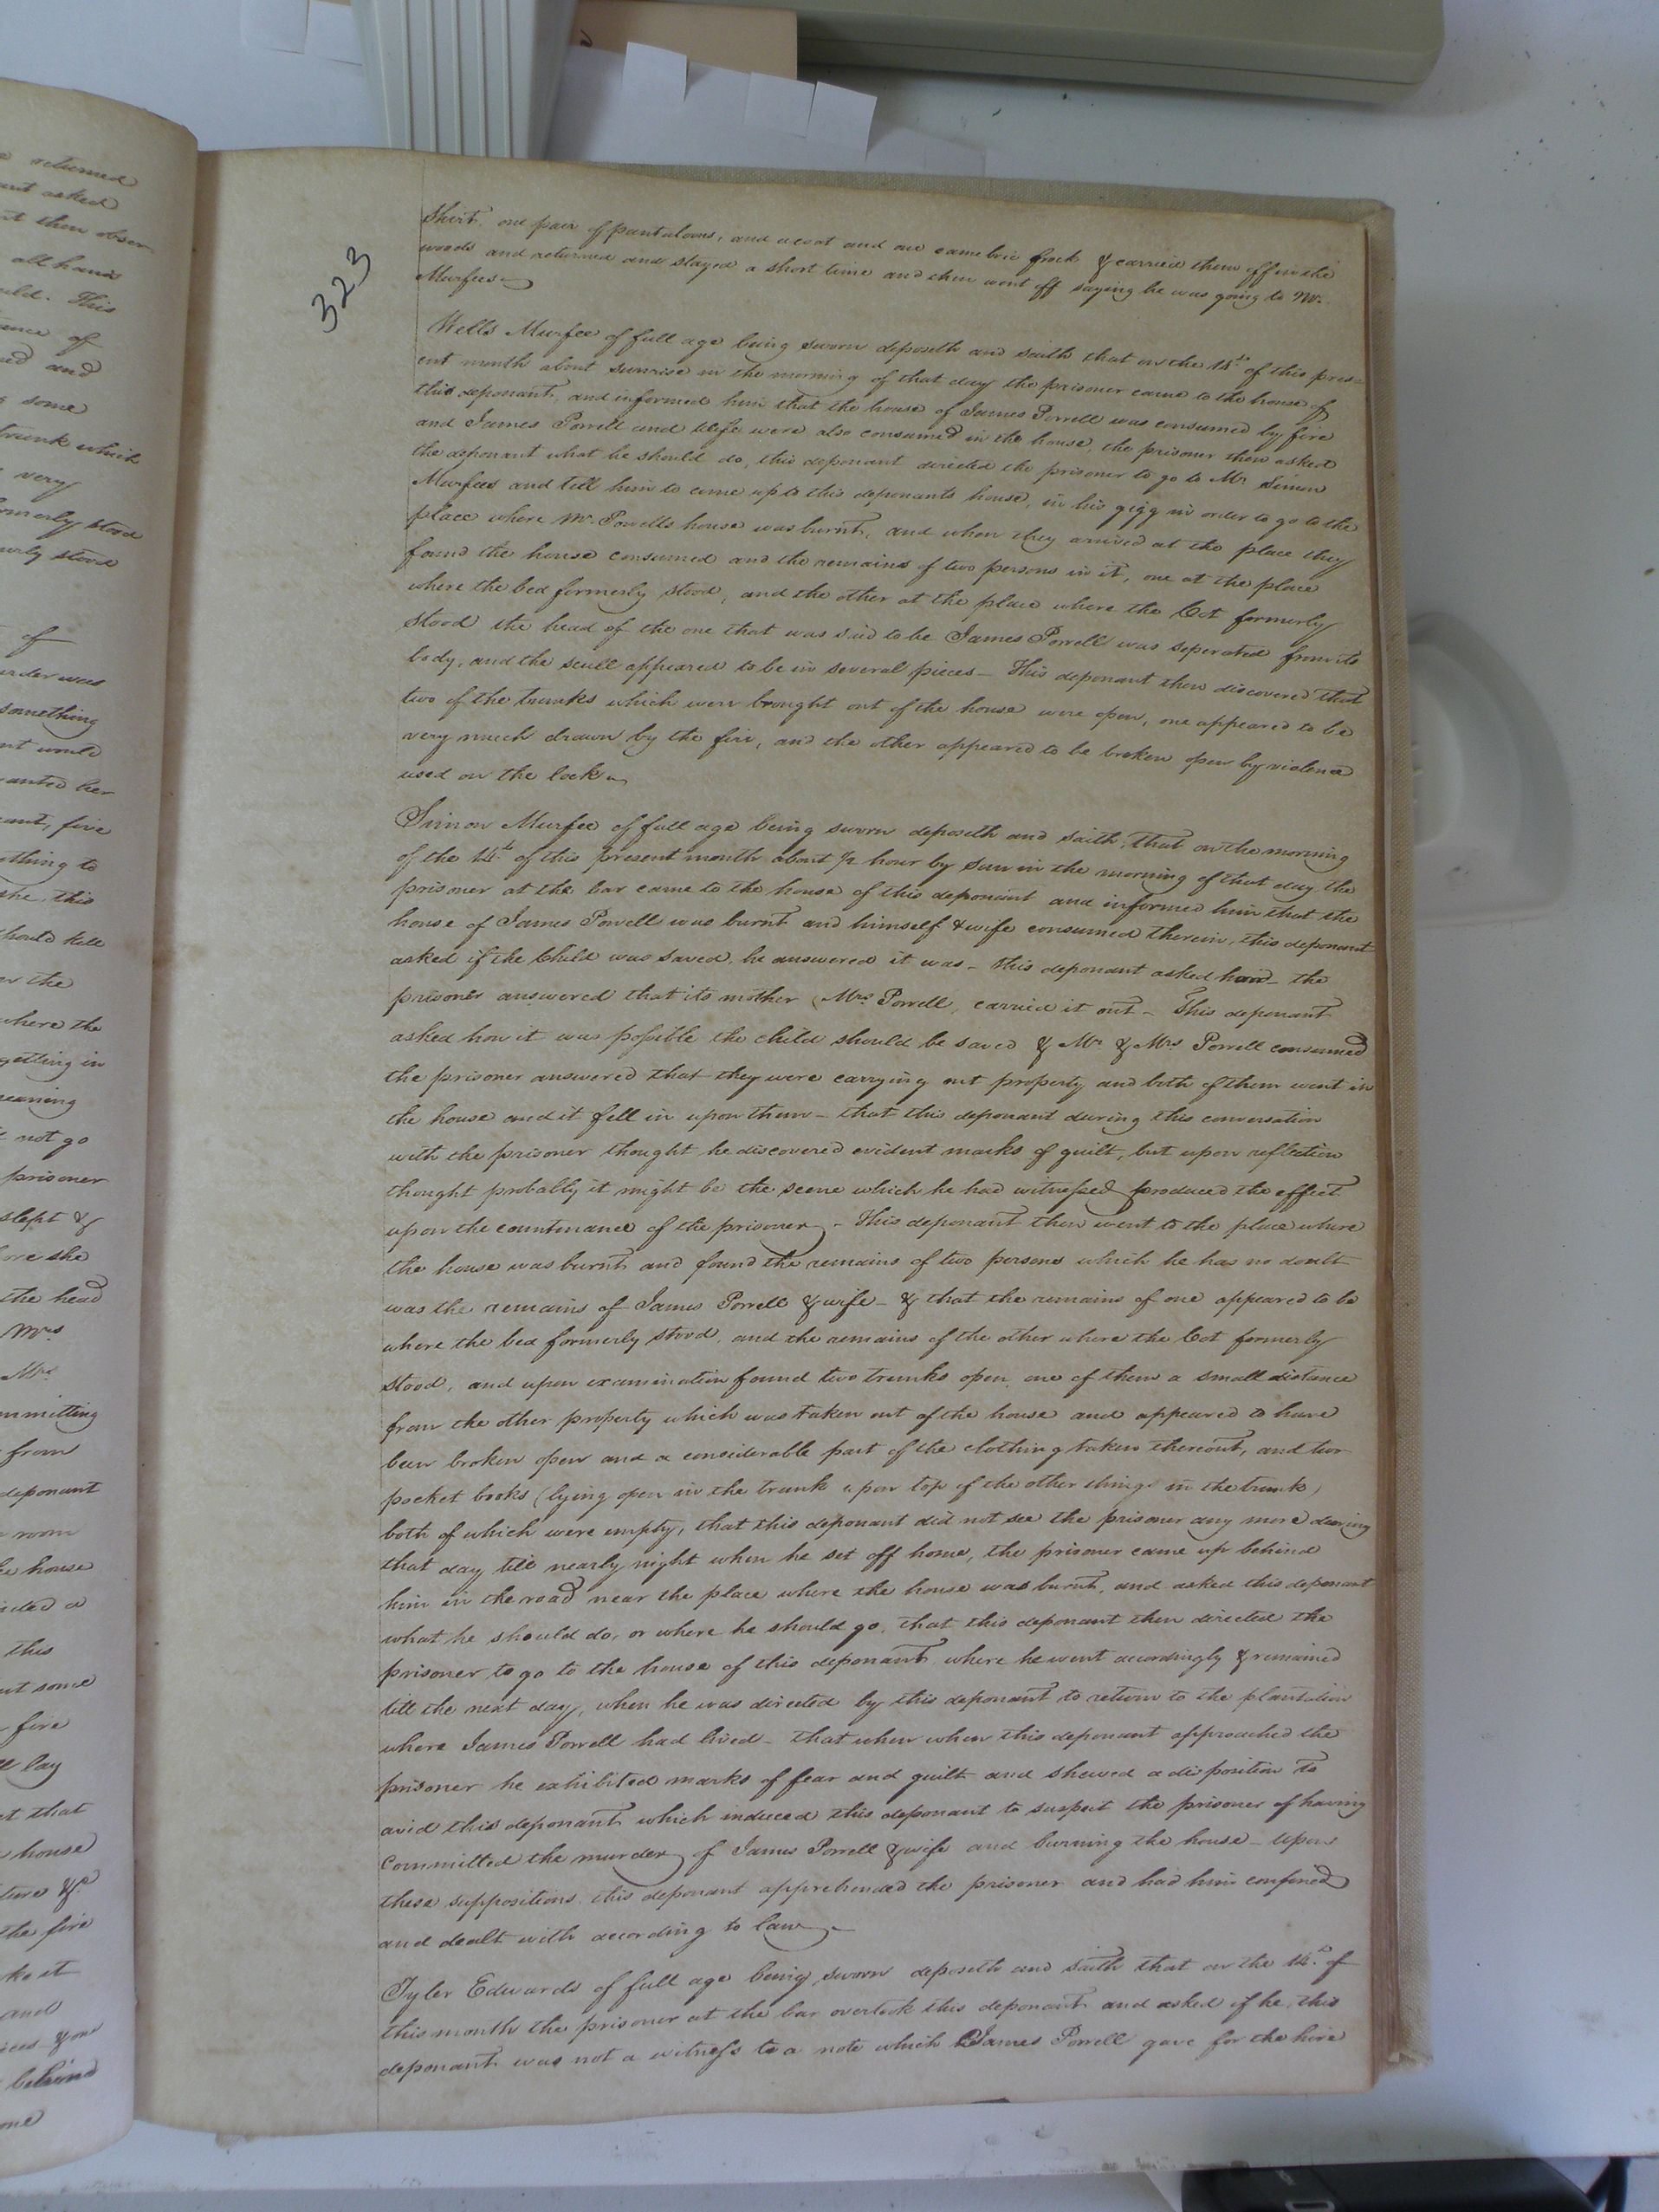 323
Shirt, one pair of pantaloons, and a coat and one cambric frock & carried them off in the
woods and returned and stayed a short time and then went off saying he was going to Mr.
Murfees
Wells Murfee of full age being sworn deposeth and saith that on the 14th of this pres-
ent month about sunrise in the morning of that day the prisoner came to the house of
this deponant, and informed him that the house of James Powell was consumed by fire
and James Powell and Wife were also consumed in the house, the prisoner then asked
the deponant what he should do, this deponant directed the prisoner to go to Mr Simon
Murfees and tell him to come up to this deponants house, in his gigg in order to go to the
place where Mr. Powells house was burnt, and when they arrived at the place they
found the house consumed and the remains of two persons in it, one at the place
where the bed formerly stood, and the other at the place where the Cot formerly
stood the head of the one that was said to be James Powell was seperated from its
body, and the scull appeared to be in several pieces - This deponant then discovered that
two of the trunks which were brought out of the house were open, one appeared to be
very much drawn by the fire, and the other appeared to be broken open by violence
used on the lock
Simon Murfee of full age being sworn deposeth and saith, that on the morning
of the 14th of this present month about 1/2 hour by sun in the morning of that day the
prisoner at the bar came to the house of this deponant and informed him that the
house of James Powell was burnt and himself & wife consumed therein, this deponant
asked if the Child was saved, he answered it was - this deponant asked how - the
prisoner answered that its mother (Mrs Powell, carried it out - This deponant
asked how it was possible the child should be saved & Mr & Mrs Powell consumed
the prisoner answered that they were carrying out property and both of them went in
the house and it fell in upon them - that this deponant during this conversation
with the prisoner thought he discovered evident marks of guilt, but upon reflection
thought probably it might be the scene which he had witnessed produced the effect
upon the countenance of the prisoner - This deponant then went to the place where
the house was burnt and found the remains of two persons which he has no doubt
was the remains of James Powell & wife - & that the remains of one appeared to be
where the bed formerly stood, and the remains of the other where the Cot formerly
stood, and upon examination found two trunks open, one of them a small distance
from the other property which was taken out of the house and appeared to have
been broken open and a considerable part of the clothing taken thereout, and two
pocket books (lying open in the trunk upon top of the other things in the trunk)
both of which were empty, that this deponant did not see the prisoner any more during
that day till nearly night when he set off home, the prisoner came up behind
him in the road near the place where the house was burnt, and asked this deponant
what he should do, or where he should go, that this deponant then directed the
prisoner to go to the house of this deponant, where he went accordingly & remained
till the next day, when he was directed by this deponant to return to the plantation
where James Powell had lived - that when when this deponant approached the
prisoner he exhibited marks of fear and guilt and shewed a disposition to
avid this deponant which induced this deponant to suspect the prisoner of having
committed the murder of James Powell & wife and burning the house - Upon
these suppositions this deponant apprehended the prisoner and had him confined
and dealt with according to law
Tyler Edwards of full age being sworn deposeth and saith that on the 14th of
this month the prisoner at the bar overtook this deponant and asked if he, this
deponant was not a witness to a note which James Powell gave for the hire
returned
asked
then obser
all hands
This
of
and
some
trunk which
very
formerly stood
stood
of
murder was
something
would
wanted her
fire
thing to
she, this
should kill
the
where the
getting in
meaning
not go
prisoner
slept &
she
the head
Mrs
Mrs
committing
from
deponant
room
house
a
this
some
fire
lay
that
house
&c
the fire
it
and
behind
one